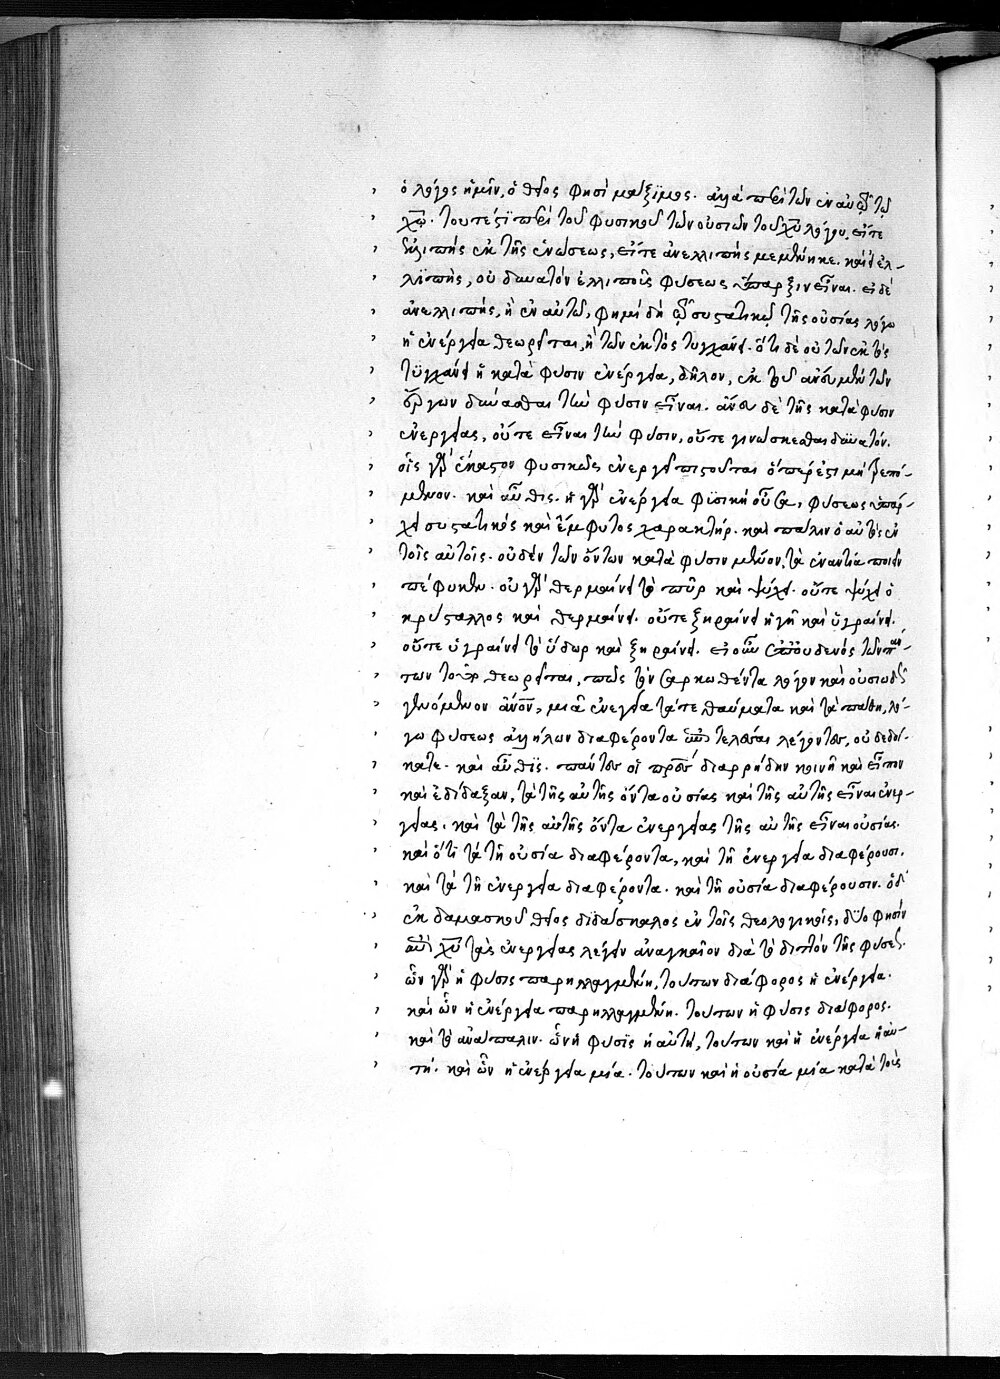 ὁ λόγος ἡμῖν, ὁ θεῖος φησὶ μάξιμος. ἀλλὰ περὶ τῶν ἐν αὐτῷ τῷ
χῶ. τουτέστι περὶ τοῦ φυσικοῦ τῶν οὐσιῶν τοῦ χυ λόγου, εἴτε
ἐλλιπὴς ἐκ τῆς ἑνώσεως, εἴτε ἀνελλιπὴς μεμένηκε. καὶ εἰ ἐλ-
λιπὴς, οὐ δυνατὸν ἐλλιποῦς φύσεως ὕπαρξιν εἶναι. εἰ δὲ
ἀνελλιπής, ἢ ἐν αὐτῶ, φημὶ δὴ τῷ συστατικῷ τῆς οὐσίας λόγω
ἡ ἐνέργεια θεωρεῖται, ἢ τῶν ἐκτὸς τυγχάνει. ὅτι δὲ οὐ τῶν ἐκτὸς
τυγχάνει ἡ κατὰ φύσιν ἐνέργεια, δῆλον, ἐκ τοῦ ἄνευ μὲν τῶν
ἔργων δύνασθαι τὴν φύσιν εἶναι. ἄνευ δὲ τῆς κατὰ φύσιν
ἐνεργείας, οὔτε εἶναι τὴν φύσιν, οὔτε γινώσκεσθαι δυνατόν.
οἷς γὰρ ἕκαστον φυσικῶς ἐνεργεῖ πιστοῦται ὅπερ ἐστὶ μὴ τρεπό-
μενον. καὶ αὖθις. ἡ γὰρ ἐνέργεια φυσικὴ οὖσα, φύσεως ὑπάρ-
χει συστατικὸς καὶ ἔμφυτος χαρακτήρ. καὶ πάλιν ὁ αὐτὸς ἐν
τοῖς αὐτοῖς. οὐδὲν τῶν ὄντων κατὰ φύσιν μένον, τὰ ἐναντία ποιεῖν
πέφυκεν. οὐ γὰρ θερμαίνει τὸ πῦρ καὶ ψύχει. οὔτε ψύχει ὁ
κρύσταλλος καὶ θερμαίνει. οὔτε ξηραίνει ἡ γῆ καὶ ὑγραίνει.
οὔτε ὑγραίνει τὸ ὕδωρ καὶ ξηραίνει. εἰ οὖν ἐπ' οὐδενὸς τῶν πάν-
των τοῦτο θεωρεῖται, πῶς τὸν σαρκωθέντα λόγον καὶ οὐσιωδῶς
γενόμενον ἄνον, μιᾶ ἐνεργεία τά τε θαύματα καὶ τὰ πάθη, λό-
γω φύσεως ἀλλήλων διαφέροντα τελέσαι λέγοντες, οὐ δεδοί-
κατε. καὶ αὖθις. πάντες οἱ προς διαρρήδην κοινῆ καὶ εἶπον
καὶ ἐδίδαξαν, τὰ τῆς αὐτῆς ὄντα οὐσίας καὶ τῆς αὐτῆς εἶναι ἐνερ-
γείας. καὶ τὰ τῆς αὐτῆς ὄντα ἐνεργείας τῆς αὐτῆς εἶναι οὐσίας.
καὶ ὅτι τὰ τῆ οὐσία διαφέροντα, καὶ τῆ ἐνεργεία διαφέρουσι.
καὶ τὰ τῆ ἐνεργεία διαφέροντα. καὶ τῆ οὐσία διαφέρουσιν. ὁ δ'
ἐκ δαμασκοῦ θεῖος διδάσκαλος ἐν τοῖς θεολογικοῖς, δύο φησὶν
ἐπὶ χυ τὰς ἐνεργείας λέγειν ἀναγκαῖον διὰ τὸ διπλὸν τῆς φύσεως.
ὧν γὰρ ἡ φύσις παρηλλαγμένη, τούτων διάφορος ἡ ἐνέργεια.
καὶ ὧν ἡ ἐνέργεια παρηλλαγμένη. τούτων ἡ φύσις διάφορος.
καὶ τὸ ἀνάπαλιν. ὧν ἡ φύσις ἡ αὐτή, τούτων καὶ ἡ ἐνέργεια ἡ αὐ-
τή. καὶ ὧν ἡ ἐνέργεια μία. τούτων καὶ ἡ οὐσία μία κατὰ τοὺς